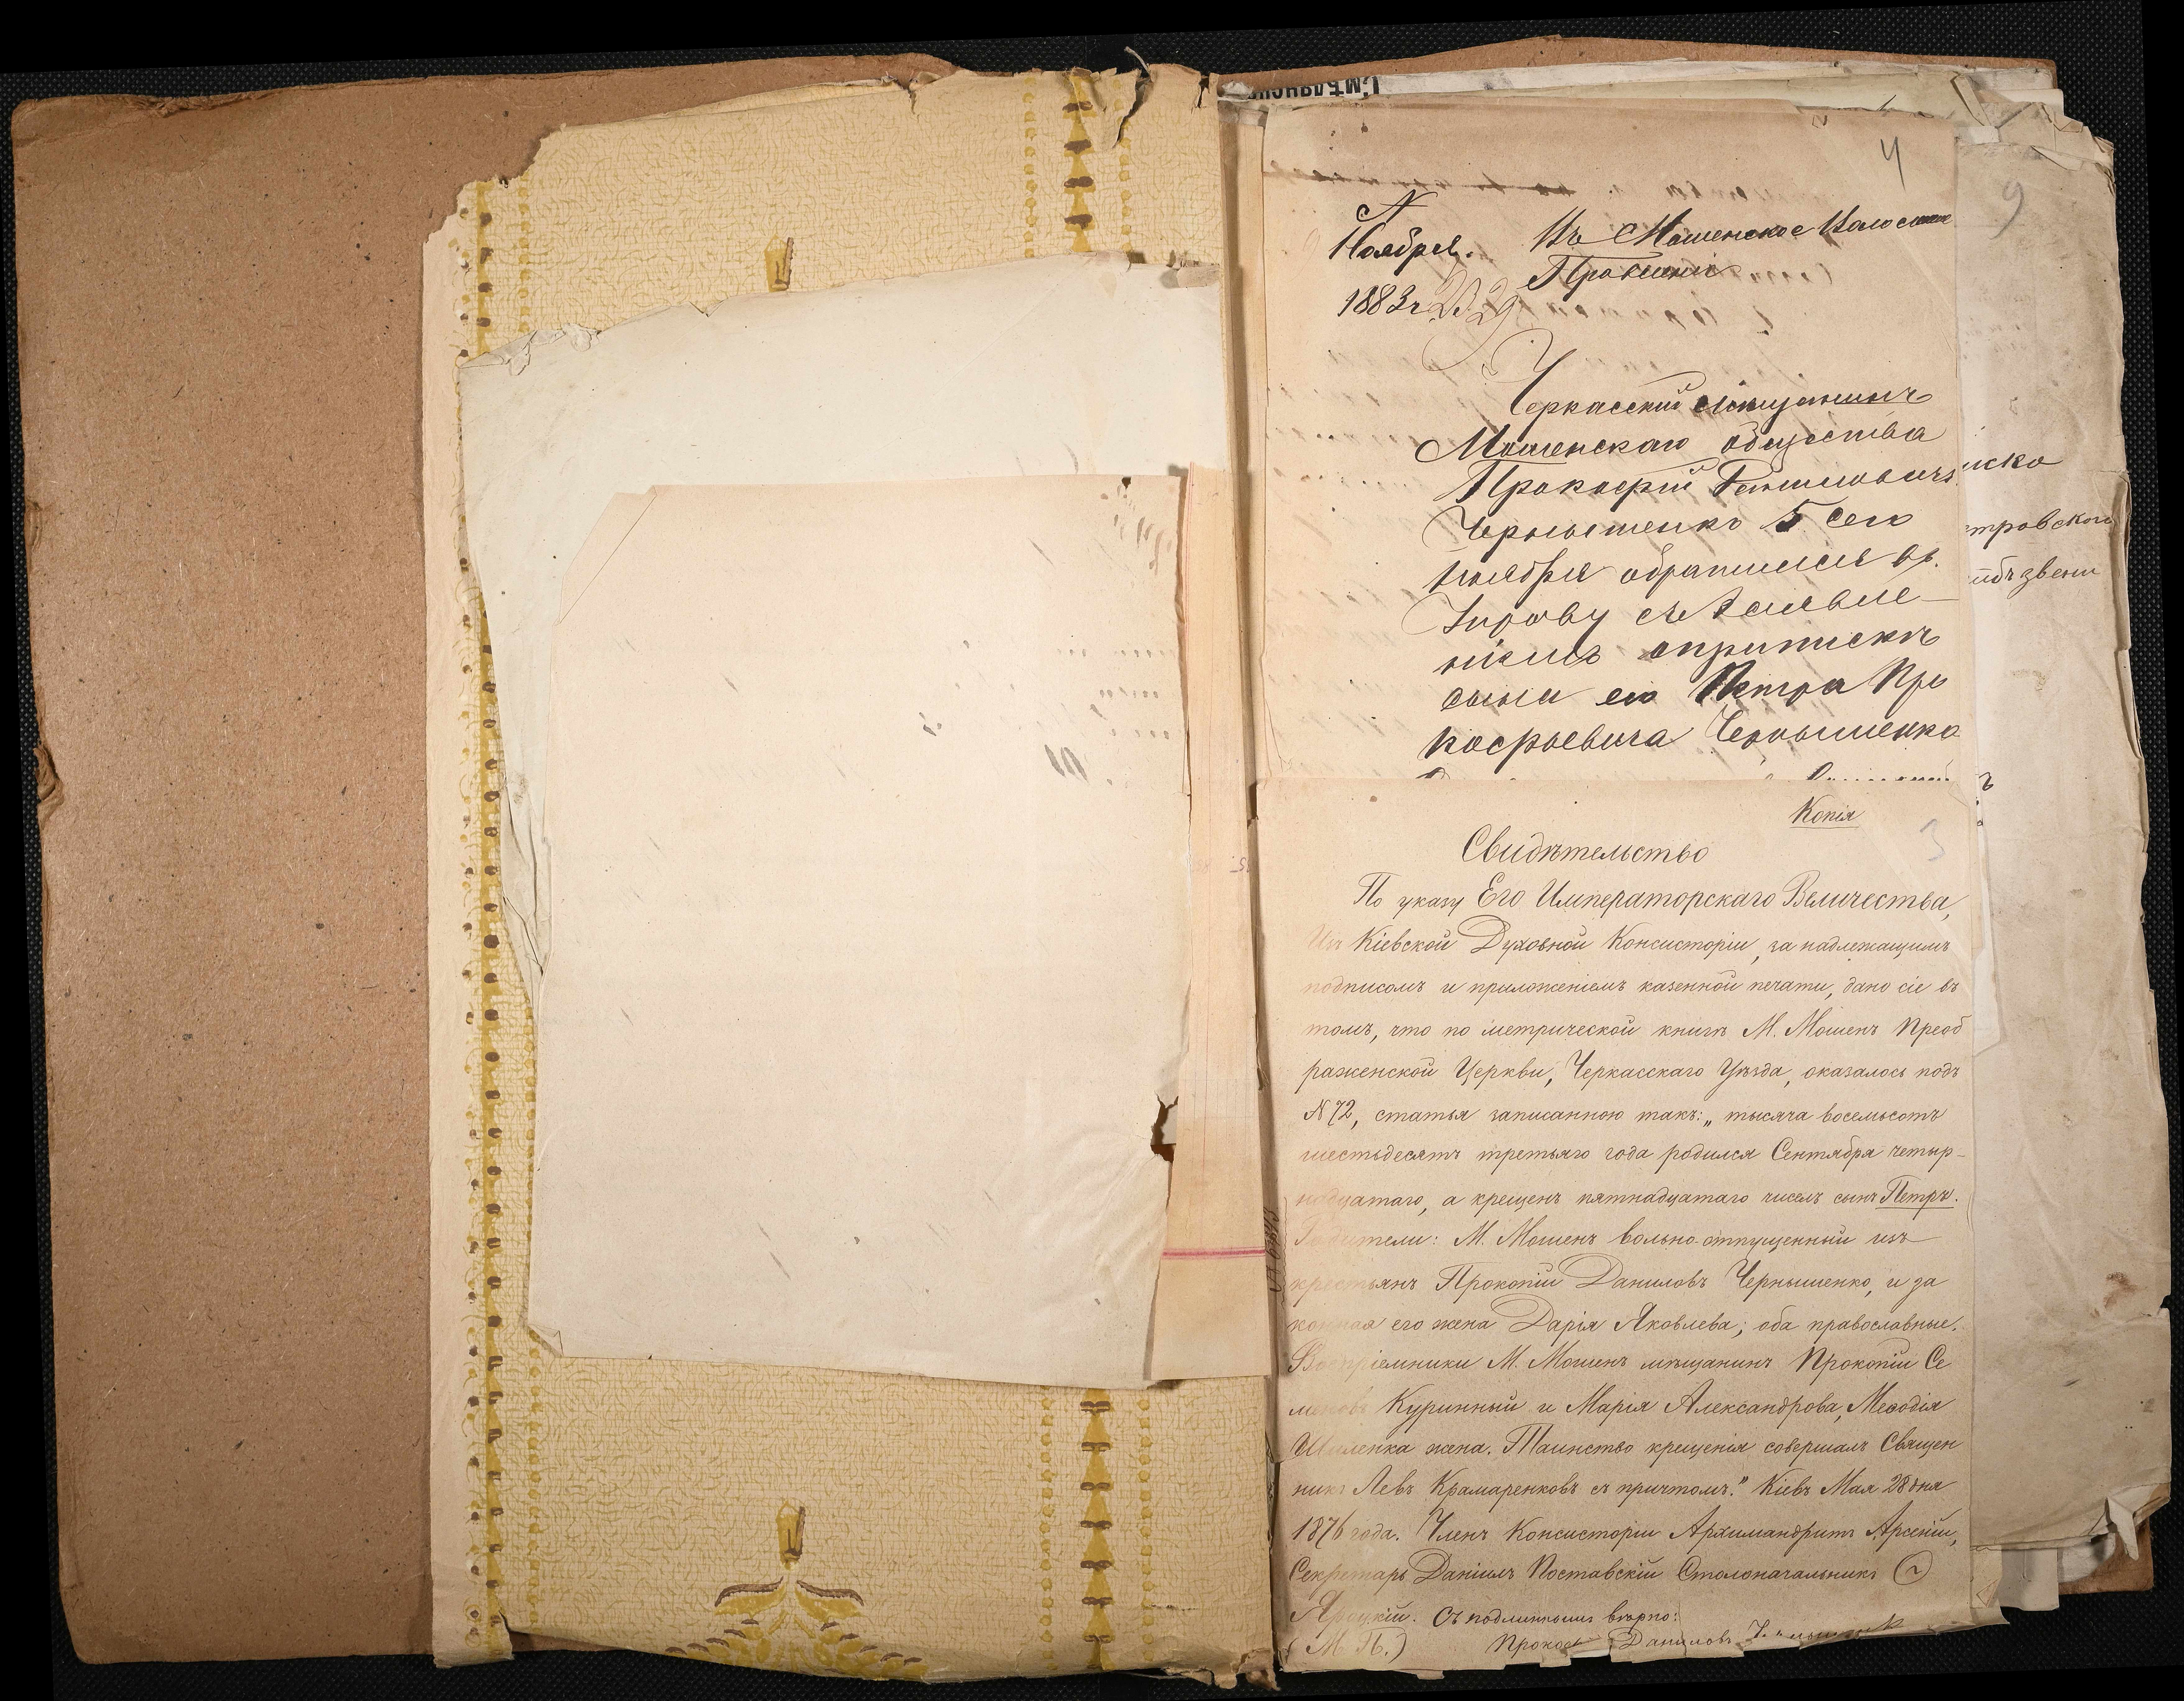 Смѣлянск
4
9
N
Ноября.
1883 г.
Въ Мошенское Волостное
Правленіе
Черкасскій мѣщанинъ
Мошенскаго общества
Прокофій Даниловичъ
Чернышенко 5 сего
Ноября обратился въ
Управу съ Заявле-
ніемъ о припискѣ
сына его Петра Про
кофьевича Чернышенко
иско
тровского
Копія
3
Свидѣтельство
По указу Его Императорскаго Величества,
Изъ Кіевской Духовной Консисторіи, за надлежащимъ
подписомъ и приложеніемъ казенной печати, дано сіе въ
томъ, что по метрической книгѣ М. Мошенъ Преоб
раженской Церкви, Черкасскаго Уѣзда, оказалось подъ
N 72, статья записанною такъ: „тысяча восемьсотъ
шестьдесятъ третьяго года родился Сентября четыр-
надцатаго, а крещенъ пятнадцатаго числъ сынъ Петръ.
Родители: М. Мошенъ вольно-отпущенный изъ
крестьянъ Прокопій Даниловъ Чернышенко, и за
конная его жена Дарія Яковлева; оба православные.
Воспріемники М. Мошенъ мѣщанинъ Прокопій Се
меновъ Куринный и Марія Александрова, Меѳодія
жена. Таинство крещенія совершалъ Священ
никъ Левъ Крамаренковъ съ причтомъ." Кіевъ Мая 28 дня
1876 года. Членъ Консисторіи Архимандритъ Арсеній,
Секретарь Даніилъ Поставскій Столоначальникъ
Яроцкій. Съ подлиннымъ вѣрно:
(М. П.) Прокоп Даниловъ